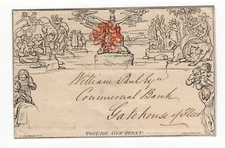 William Paul Esqr
Commercial Bank
Gatehouse of Fleet
POSTAGE ONE PENNY.